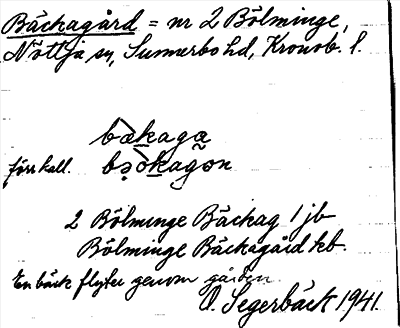 Bäckagård = nr 2 Bölminge,
Nöttja sn, Sunnerbo hd, Kronob. l.
bàkaga
förr kall. bə̀kagon
2 Bölminge Bäckag 1 jb
Bölminge Bäckagård kb.
En bäck flyter genom gården
O. Segerbäck 1941.